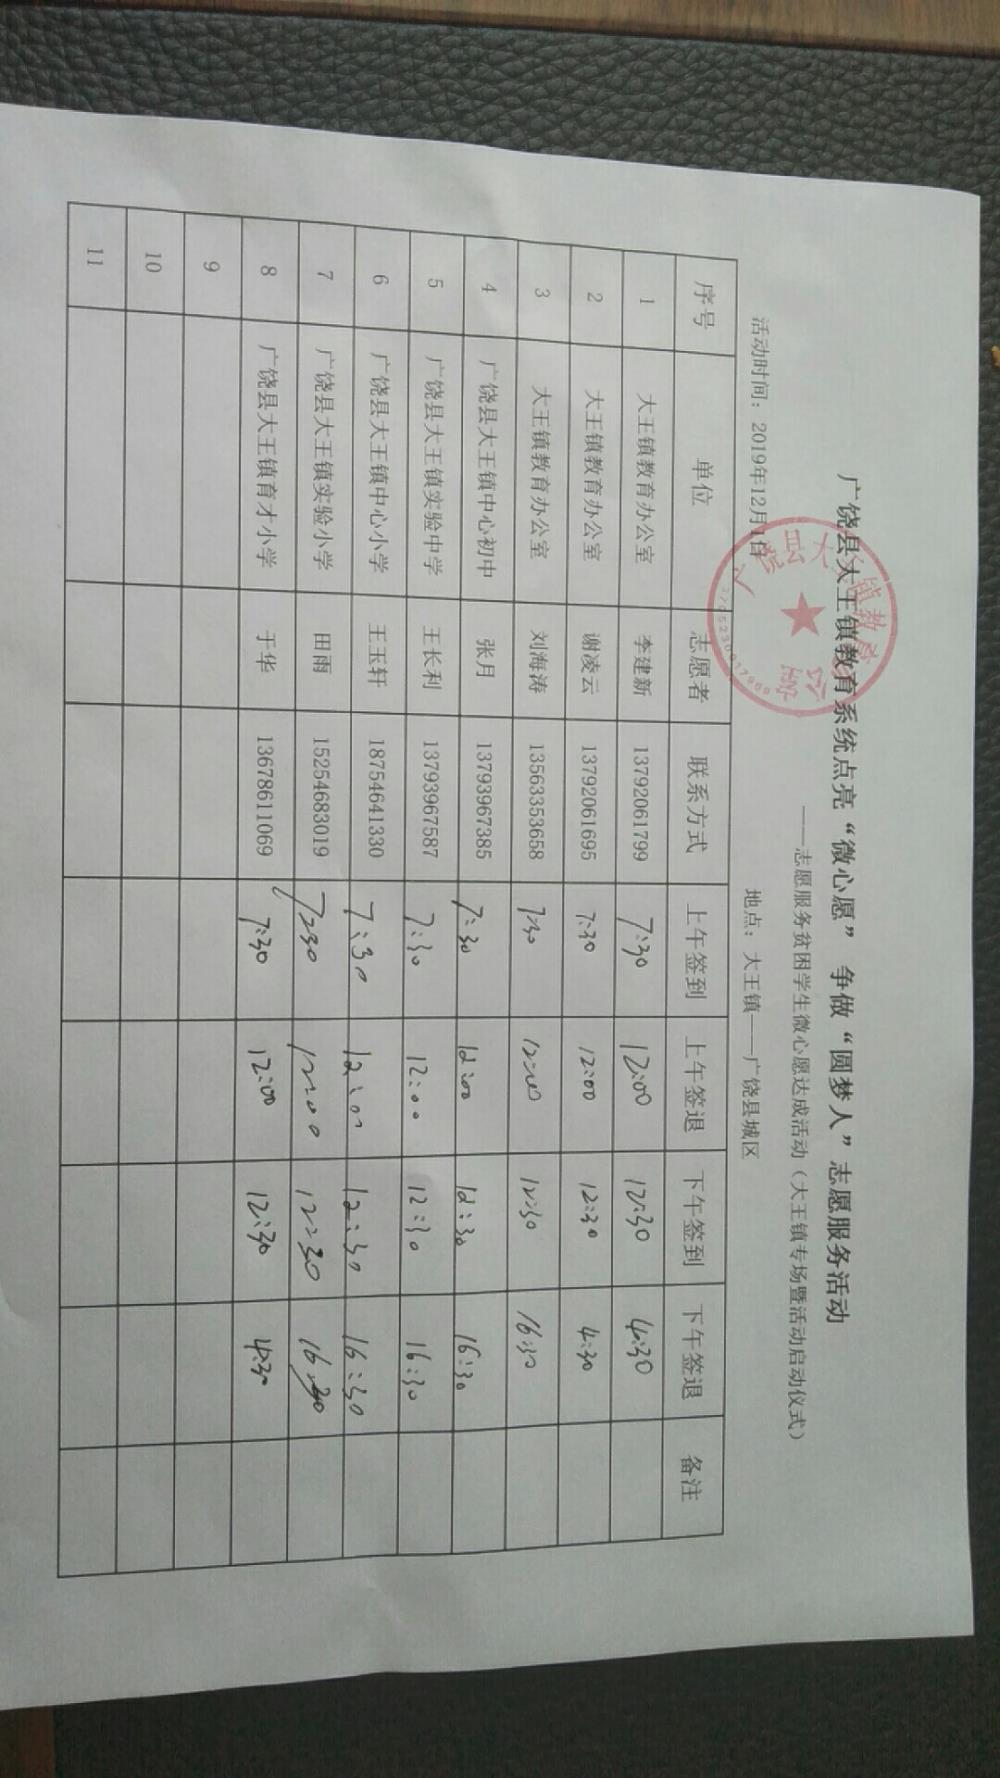 广饶县大王镇教育系统点亮“微心愿” 争做“圆梦人”志愿服务活动
——志愿服务贫困学生微心愿达成活动（大王镇专场暨活动启动仪式）
活动时间：2019年12月1日 地点：大王镇——广饶县城区
序号 单位 志愿者 联系方式 上午签到 上午签退 下午签到 下午签退 备注
1 大王镇教育办公室 李建新 13792061799 7:30 12:00 12:30 4:30
2 大王镇教育办公室 谢凌云 13792061695 7:30 12:00 12:30 4:30
3 大王镇教育办公室 刘海涛 13563353658 7:30 12:00 12:30 16:30
4 广饶县大王镇中心初中 张月 13793967385 7:30 12:00 12:30 16:30
5 广饶县大王镇实验中学 王长利 13793967587 7:30 12:00 12:30 16:30
6 广饶县大王镇中心小学 王玉轩 18754641330 7:30 12:00 12:30 16:30
7 广饶县大王镇实验小学 田雨 15254683019 7:30 12:00 12:30 16:30
8 广饶县大王镇育才小学 于华 13678611069 7:30 12:00 12:30 4:30
9
10
11
广饶县大王镇教育办公室